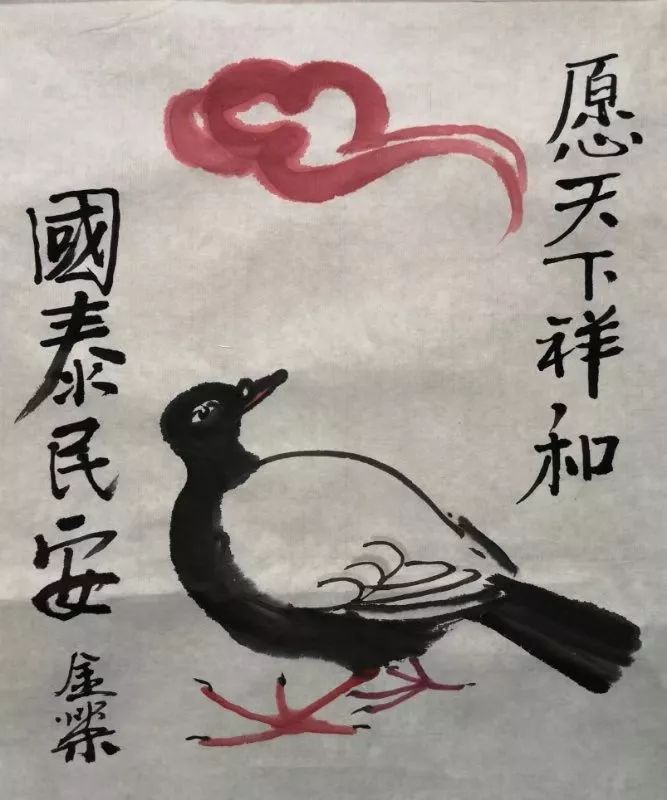 愿天下祥和
國泰民安
金荣